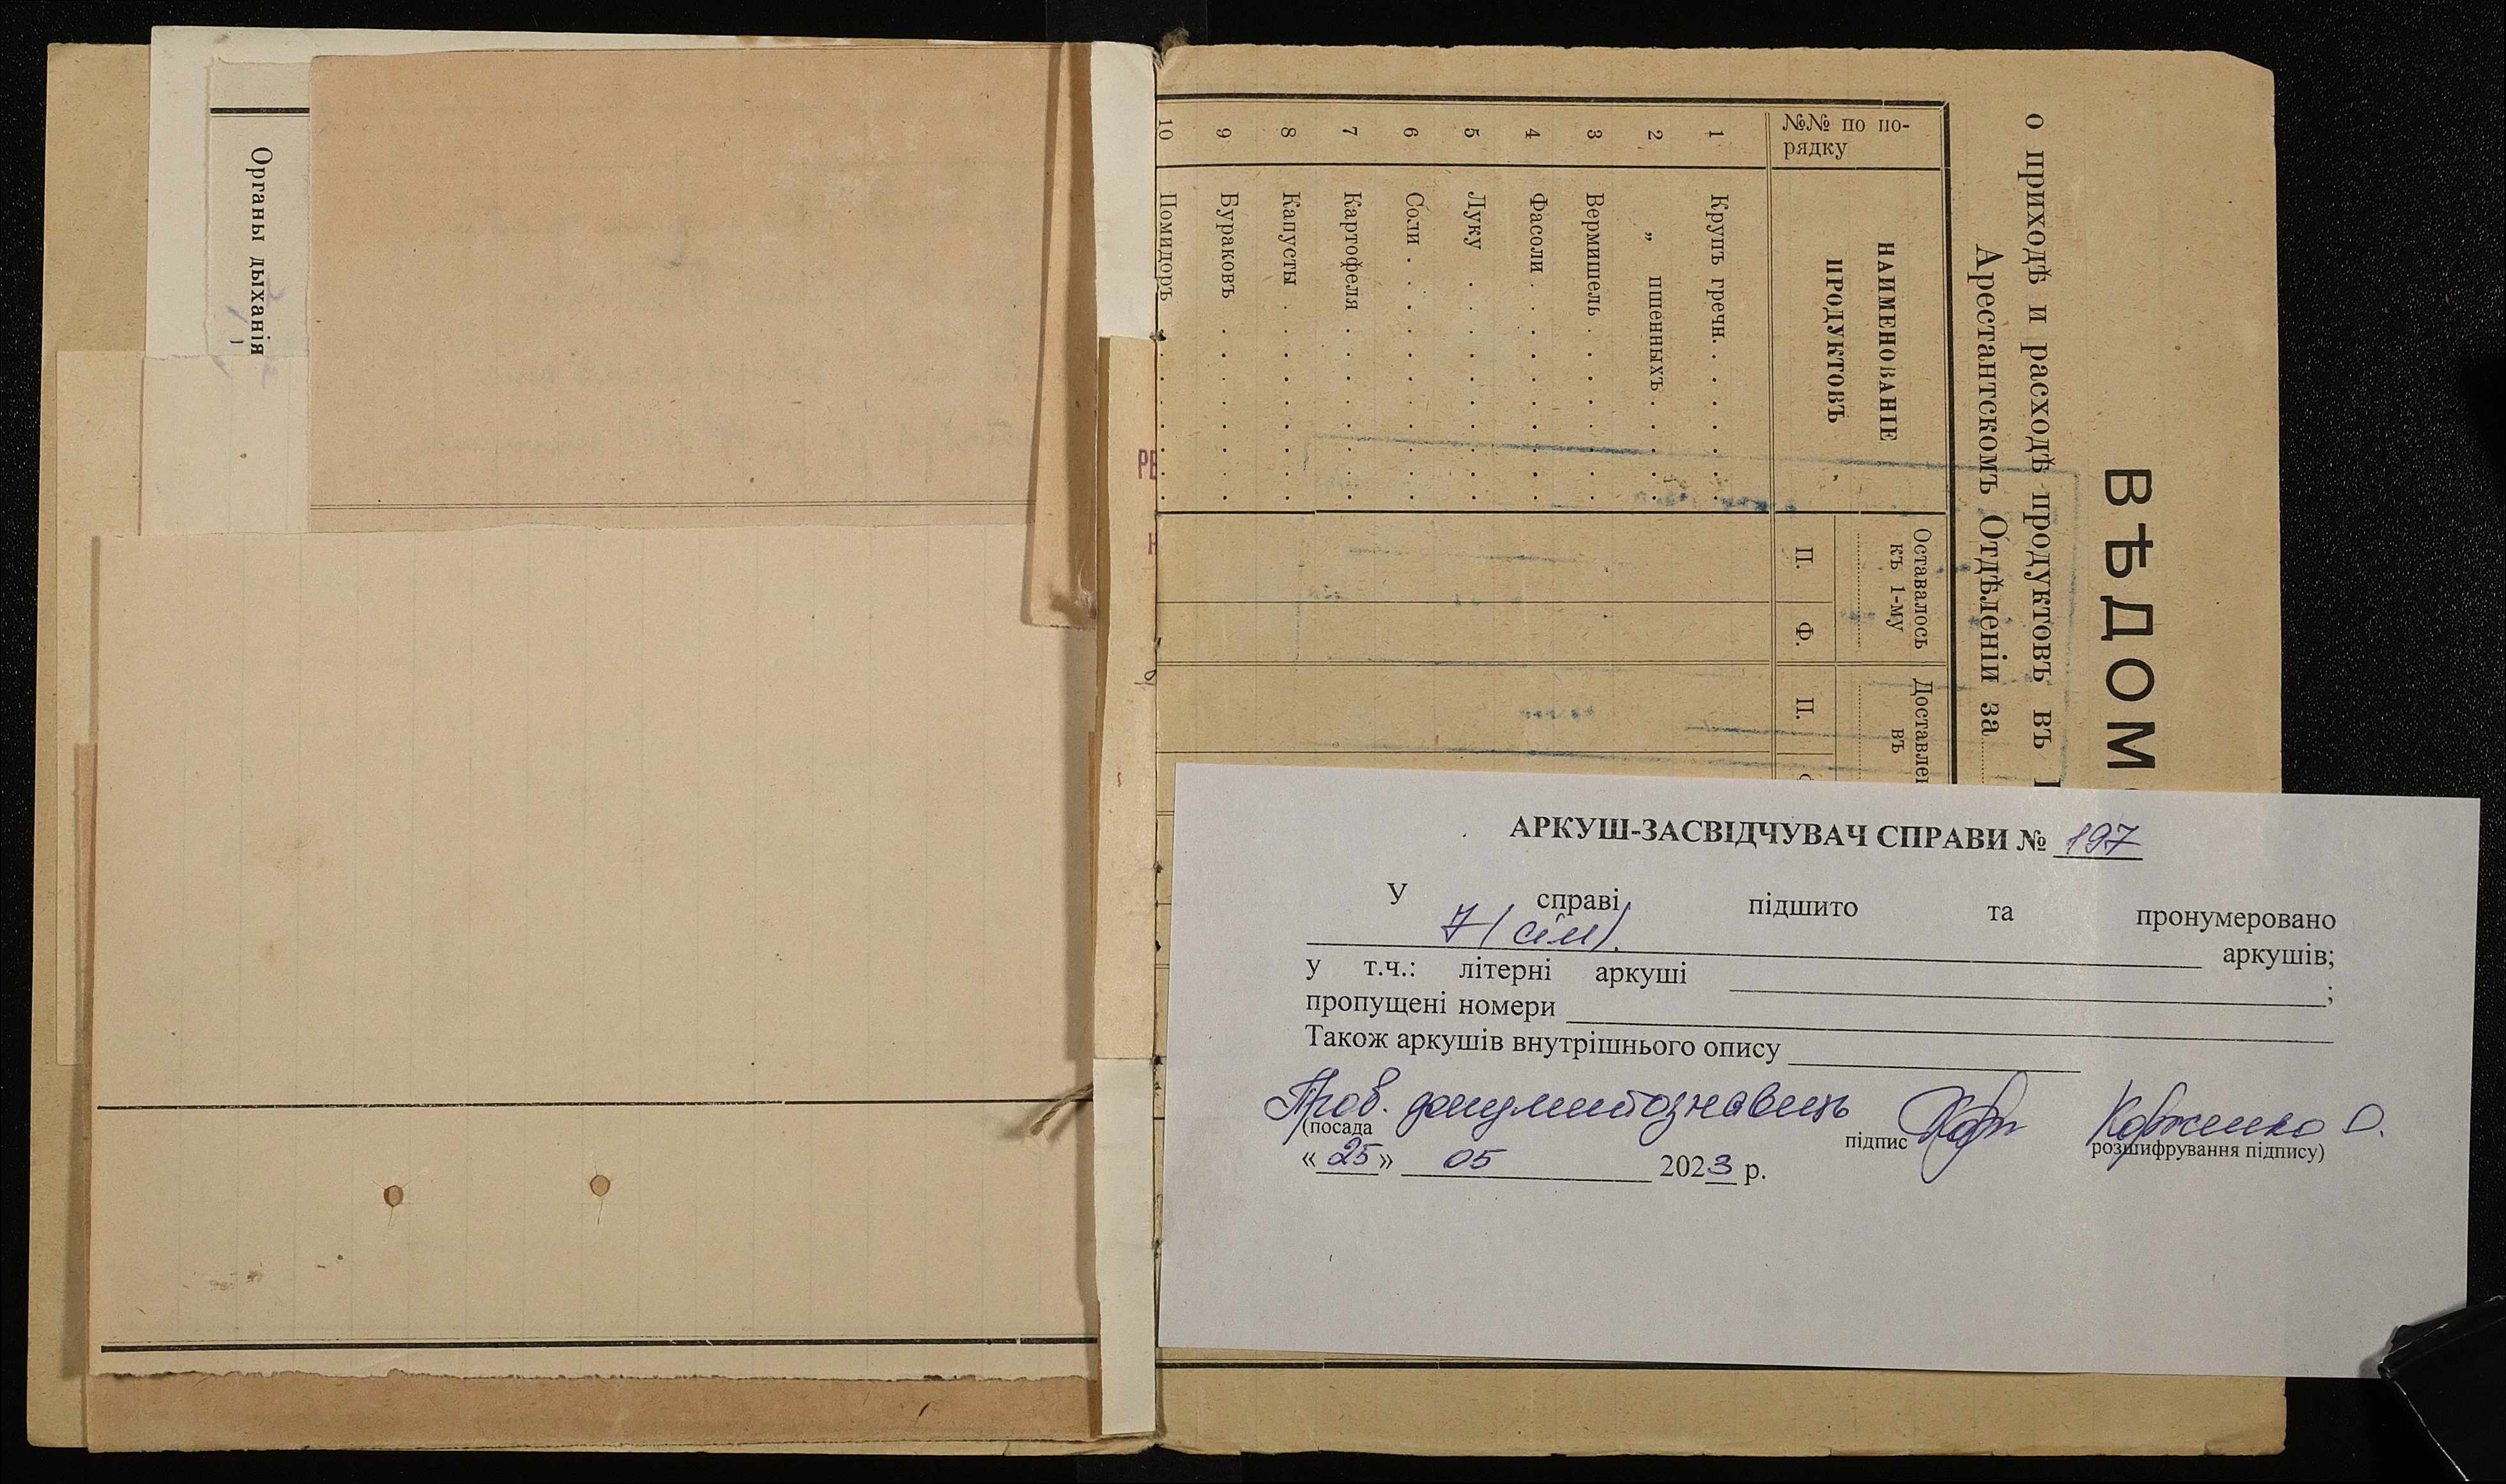 Органы дыханія
ВѢДОМ
о приходѣ и расходѣ продуктовъ въ
Арестантскомъ Отдѣленіи за
№№ по по-
рядку
НАИМЕНОВАНІЕ
ПРОДУКТОВЪ
Оставалось
къ 1-му
Доставлен
въ
П.
Ф.
П.
1 Крупъ гречн. . . . .
2 „ пшенныхъ . . .
3 Вермишель . . . . .
4 Фасоли . . . . . .
5 Луку . . . . . .
6 Соли . . . . . .
7 Картофеля . . . . .
8 Капусты . . . . . .
9 Бураковъ . . . . .
10 Помидоръ . . . . .
РЕ
Н
АРКУШ-ЗАСВІДЧУВАЧ СПРАВИ № 197
У справі підшито та пронумеровано
7 (сім). аркушів;
у т.ч.: літерні аркуші ;
пропущені номери
Також аркушів внутрішнього опису
Пров. документознавець Корженко О.
(посада підпис розшифрування підпису)
«25» 05 2023 р.